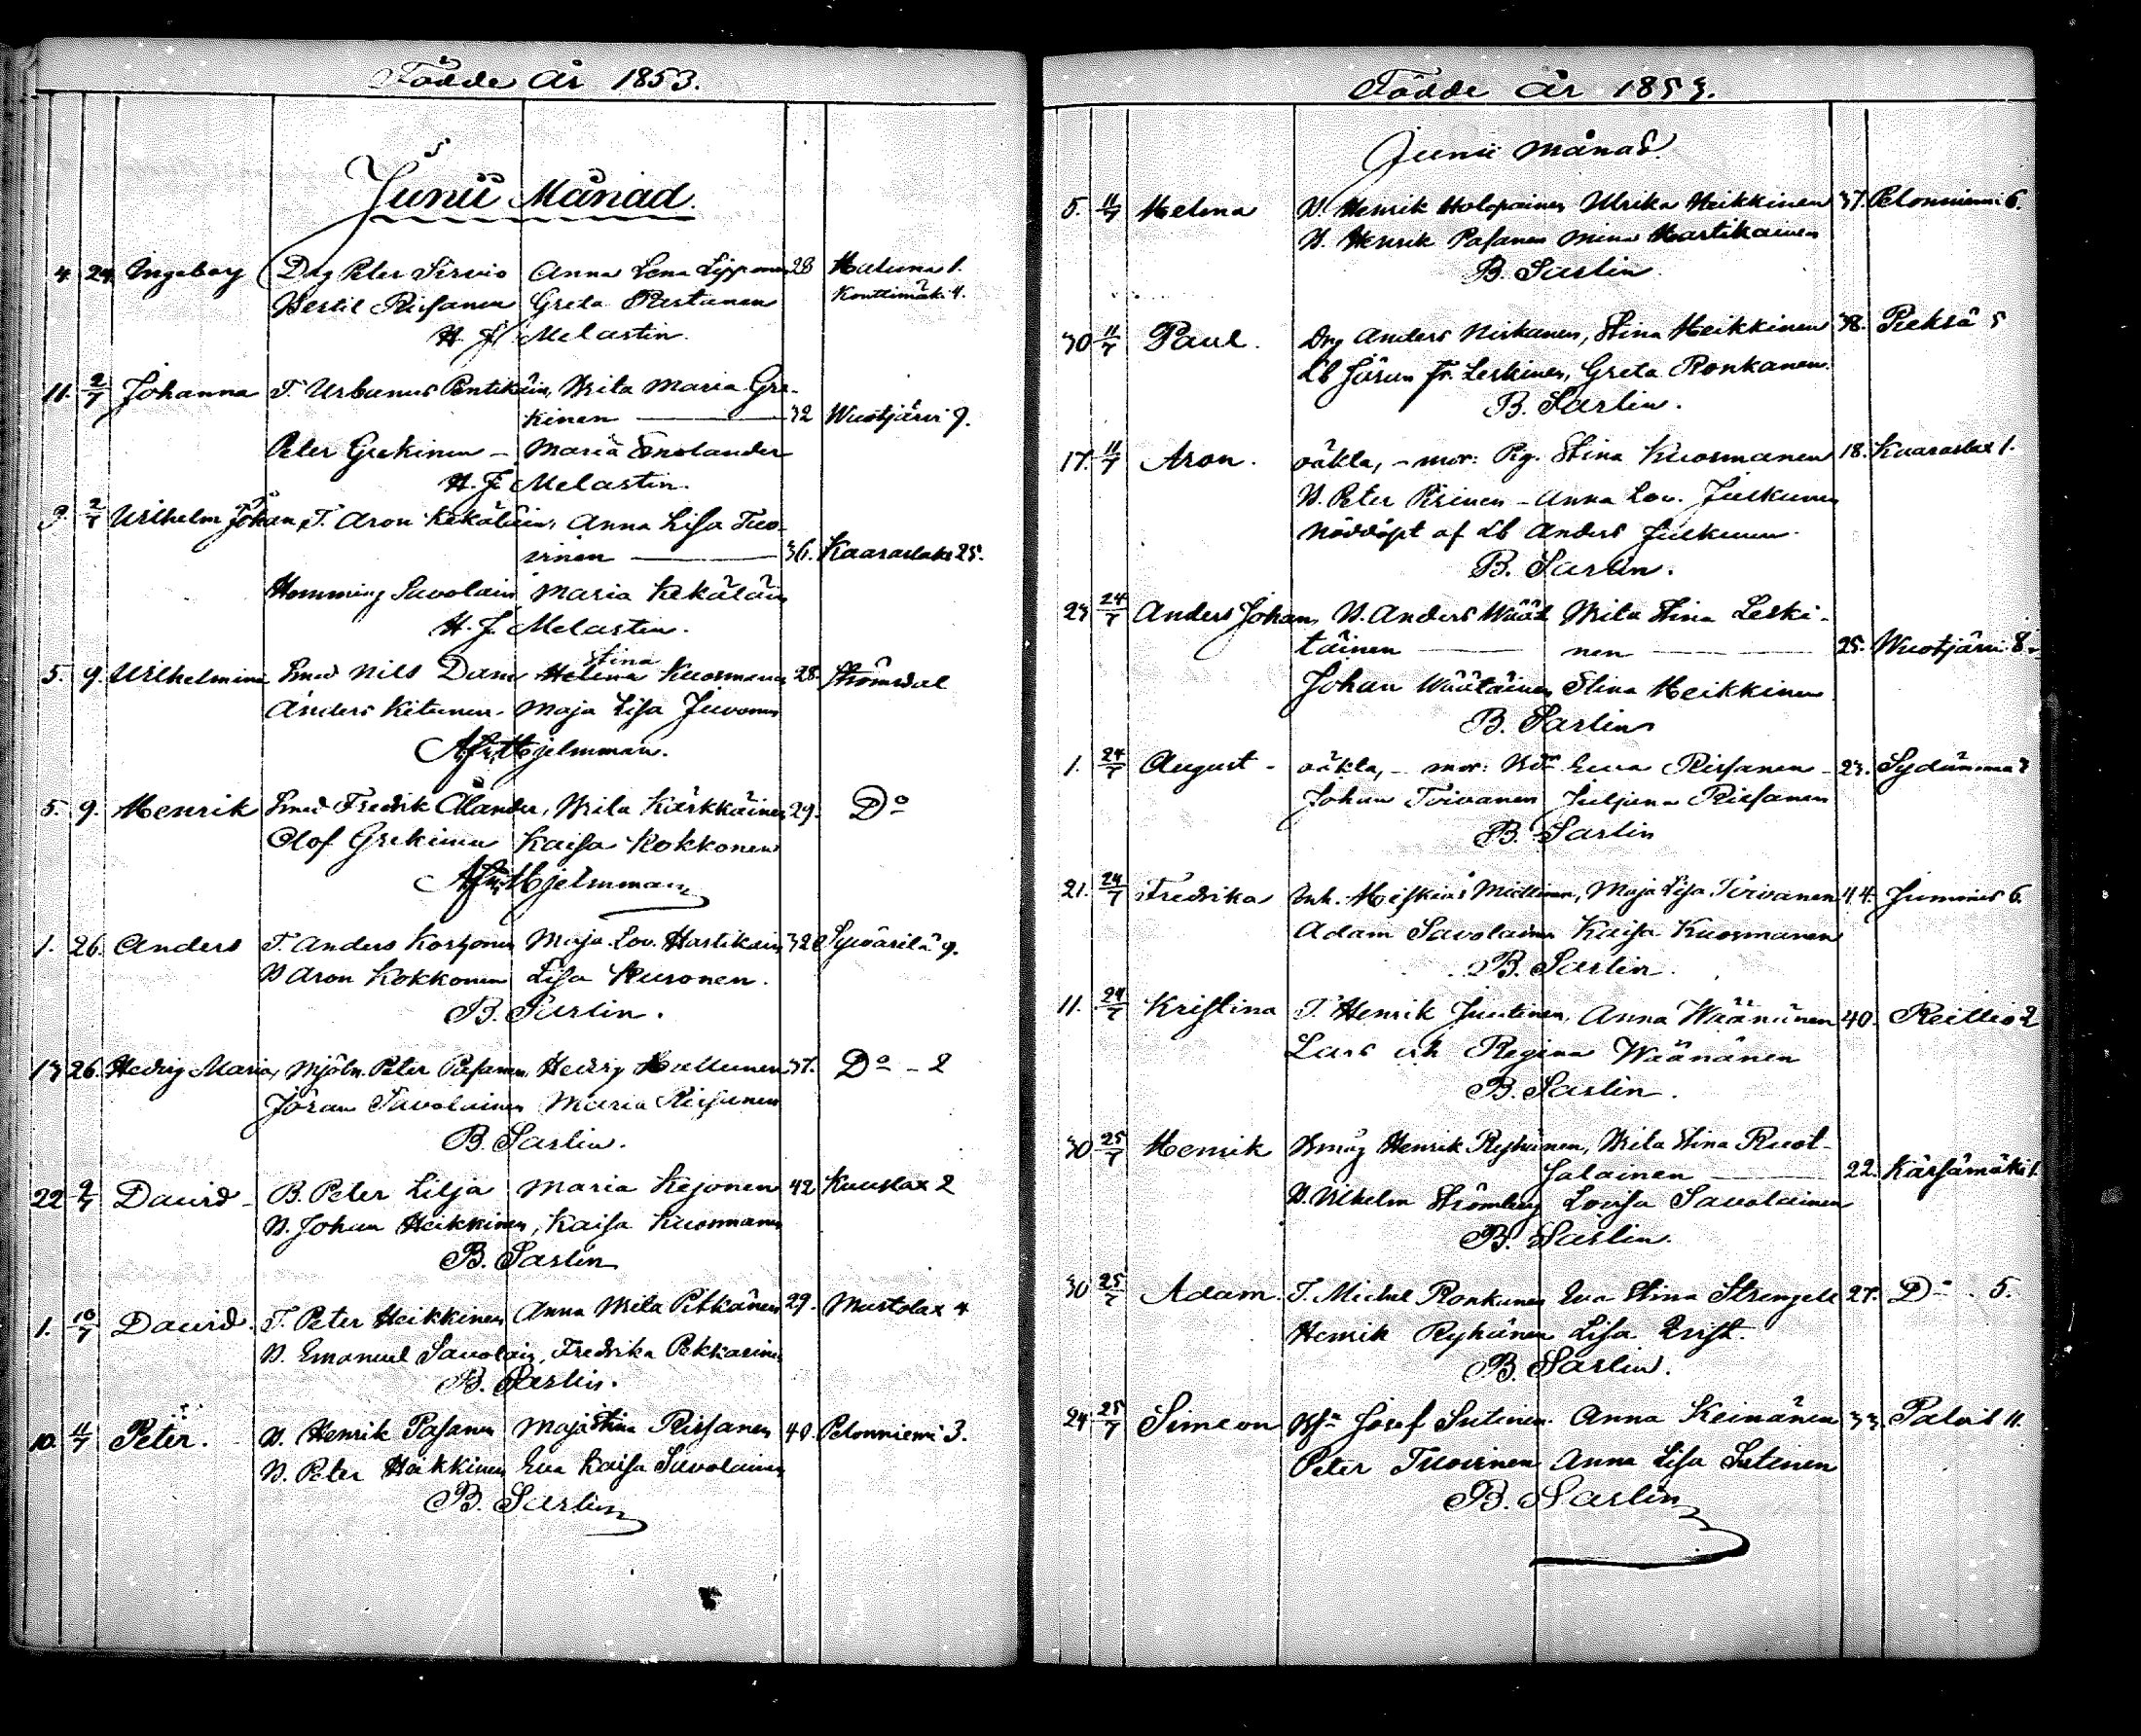 Födde År 1853.
Junii Månad.
4. 24. Ingeborg Drg Peter Sirvio Anna Lena Lipponen 28 Haluna 1.
Bertil Rissanen Greta Partanen Konttimäki 4.
H. J. Melartin.
11. 2/7 Johanna T. Urbanus Pentikäin, Brita Maria Gre-
kinen 32 Wuotjärvi 9.
Peter Grekinen - Maria Enolander
H. J. Melartin.
9. 2/7 Wilhelm Johan, T. Aron Kekäläin, Anna Lisa Tuo-
vinen 36. Kaaraslaks 25.
Hemming Savolain Maria Kekäläin
H. J. Melartin.
5. 9. Wilhelmina Smed Nils Dam Stina Kuosmanen 28. Strömsdal
Anders Kitunen - Maja Lisa Juvonen
Hjelmman.
5. 9. Henrik Smed Fredrik Ålander, Brita Kärkkäinen 29. Do
Olof Grekinen Kaisa Kokkonen
Hjelmman
1. 26. Anders T. Anders Korhonen Maja Lov. Hartikain 32 Sywärilä 9.
B Aron Kokkonen Lisa Kuronen.
B. Sarlin.
13 26. Hedvig Maria, Mjöln. Peter Pasanen, Hedvig Hallunen 37. Do - 2
Jöran Savolainen Maria Rissanen
B. Sarlin.
22 9/7 David - B. Peter Lilja Maria Kejonen 42 Kuuslax 2
B. Johan Heikkinen, Kaisa Kuosmanen
B. Sarlin
1. 10/7 David. T. Peter Heikkinen Anna Brita Pitkänen 29. Mustolax 4
B. Emanuel Savolain, Fredrika Pekkarinen
B. Sarlin.
10. 11/7 Peter. B. Henrik Pasanen Maja Stina Rissanen 40. Pelonniemi 3.
B. Peter Heikkinen Eva Kaisa Savolainen
B. Sarlin
Födde År 1853.
Junii månad.
5. 11/7 Helena B. Henrik Holopainen Ulrika Heikkinen 37. Pelonniemi 6.
B. Henrik Pasanen Mina Hartikainen
B. Sarlin.
30 11/7 Paul. Drg Anders Niskanen, Stina Heikkinen 38. Pieksä 5
Lb Jöran Fr. Leskinen, Greta Ronkanen.
B. Sarlin.
17. 11/7 Aron. oäkta, - mor: Pig. Stina Kuosmanen 18. Kaaraslax 1.
B. Peter Pirinen - Anna Lov. Juskunen
Nöddöpt af Lb Anders Juskunen.
B. Sarlin.
23 24/7 Anders Johan, B. Anders Wäät Brita Stina Leski-
täinen nen 25. Wuotjärvi 8.
Johan Wäätäinen Stina Heikkinen
B. Sarlin
1. 24/7 August - oäkta, - mor: Eva Rissanen - 23. Sydänmaa
Johan Toivanen Juljana Rissanen
B. Sarlin
21. 24/7 Fredrika Inh. Heiskias Miettinen, Maja Lisa Toivanen 44. Juminen 6.
Adam Savolainen Kaisa Kuosmanen
B. Sarlin.
11. 24/7 Kristina T. Henrik Juutinen, Anna Wäänänen 40. Reittio 2
Lars och Regina Wäänänen
B. Sarlin.
30 25/7 Henrik Bmåg Henrik Ryhänen, Brita Stina Ruot-
salainen 22. Kärsämäki 1.
B. Vilhelm Strömberg Lovisa Savolainen
B. Sarlin.
30 25/7 Adam. T. Michel Ronkanen Eva Stina Strengell 27. Do . 5.
Henrik Ryhänen Lisa Qvist.
B. Sarlin.
24. 25/7 Simeon Josef Sutinen. Anna Keinänen 33. Palois 11.
Peter Tuovinen Anna Lisa Sutinen
B. Sarlin